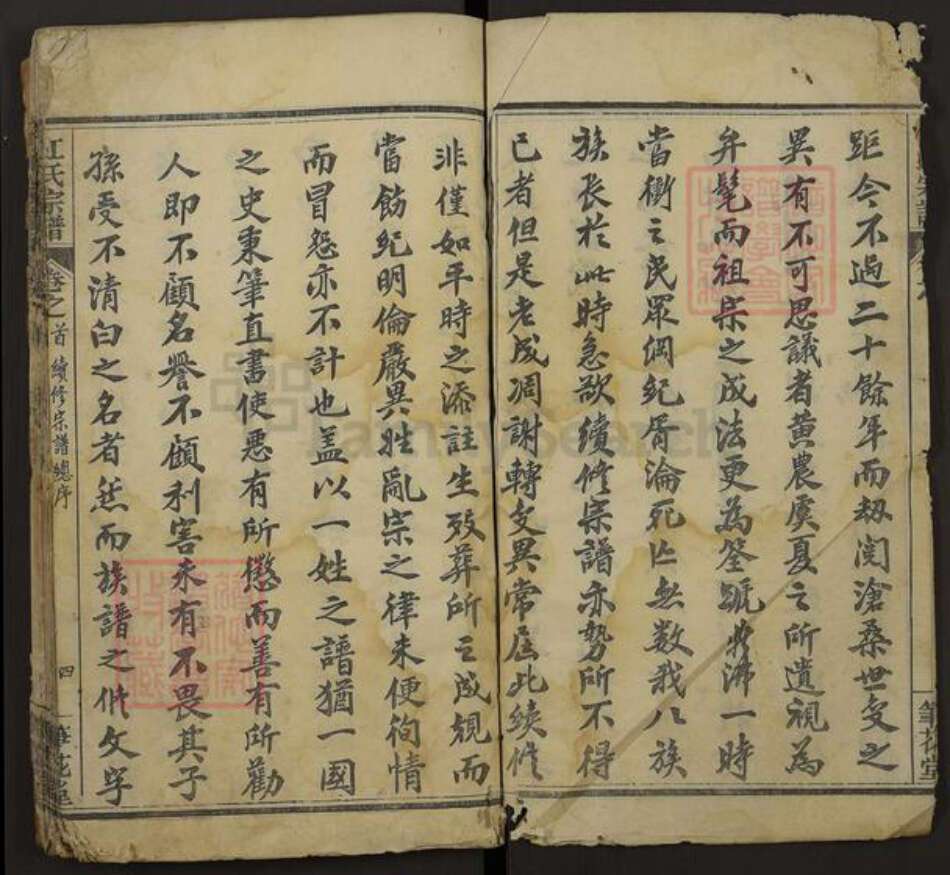 距今不過二十餘年而劫閱滄桑世變之
異有不可思議者黃農虞夏之所遺視為
弁髦而祖宗之成法更為筌蹏鼎沸一時
當衝之民眾綱紀胥淪死亡無數我八族
族長於此時急欲續修宗譜亦勢所不得
已者但是老成凋謝轉變異常屆此續修
非僅如平時之添註生歿葬所之成規而
當飭紀明倫嚴異姓亂宗之律未便徇情
而冒怨亦不計也蓋以一姓之譜猶一國
之史秉筆直書使惡有所懲而善有所勸
人即不顧名譽不顧利害未有不畏其子
孫受不清白之名者然而族譜之修文字
江氏宗譜
卷之首 續修宗譜總序
四
筆花堂
筆花堂
FamilySearch